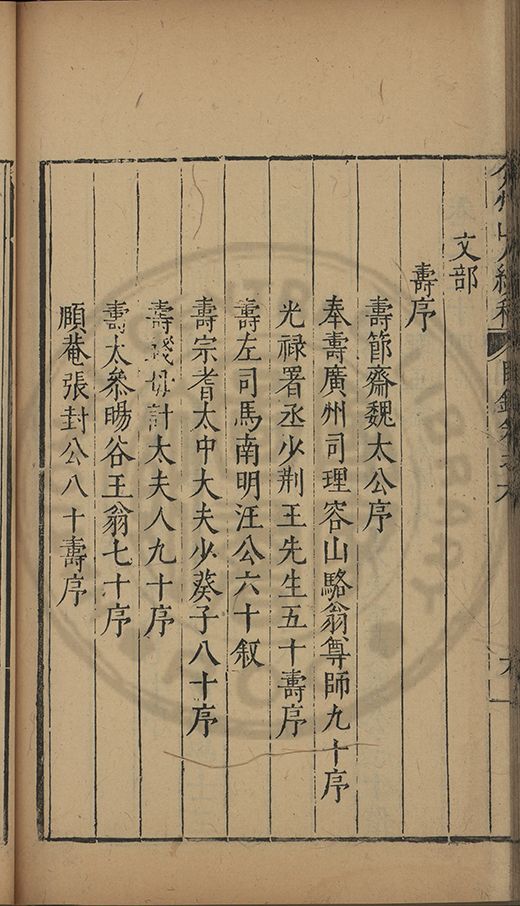 文部
壽序
壽節齋魏太公序
奉壽廣州司理容山駱翁尊師九十序
光祿署丞少荆王先生五十壽序
壽左司馬南明汪公六十叙
壽宗耆太中大夫少葵子八十序
壽 母計太夫人九十序
壽太參暘谷王翁七十序
順菴張封公八十壽序